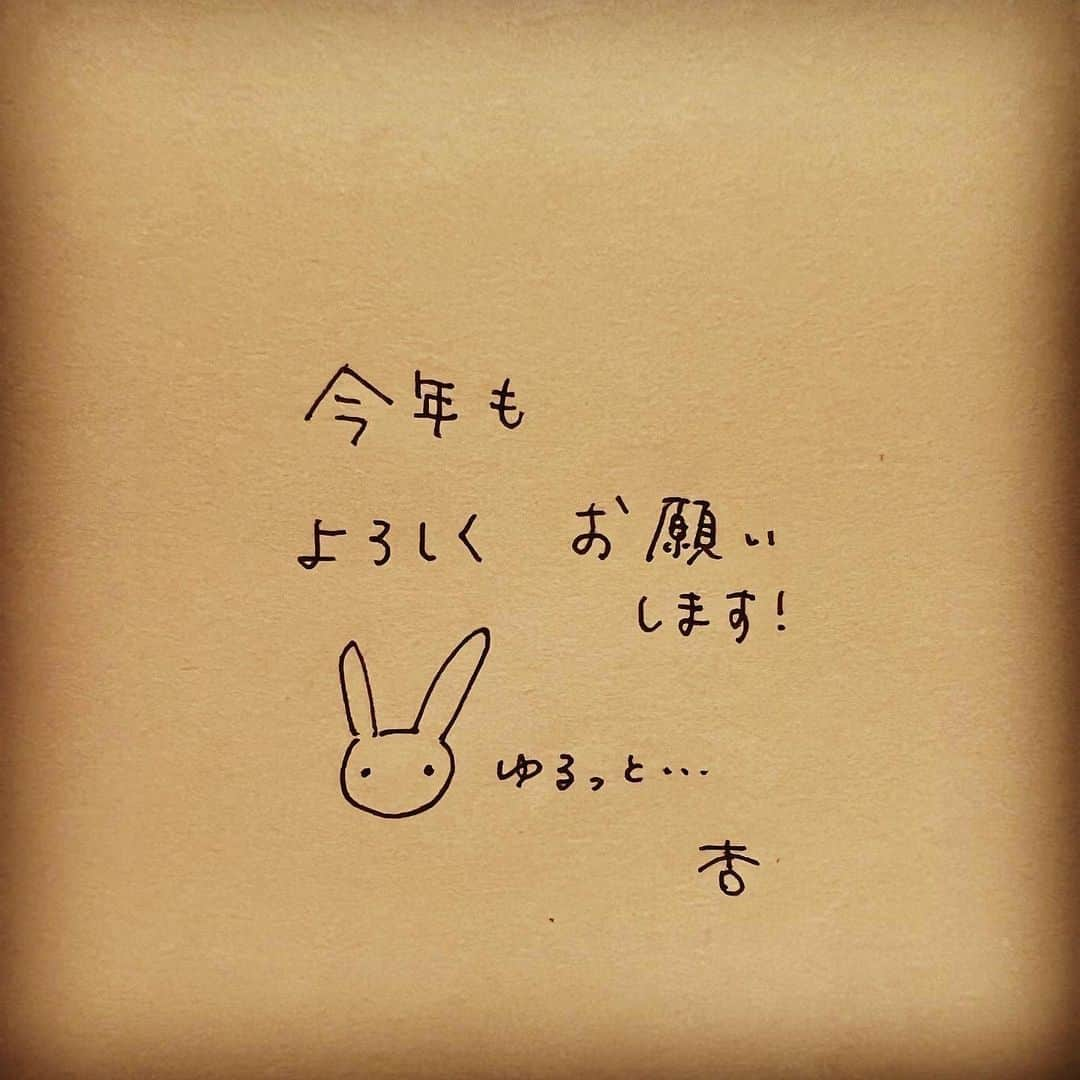 今年も
よろしく お願い
します!
ゆるっと...
杏